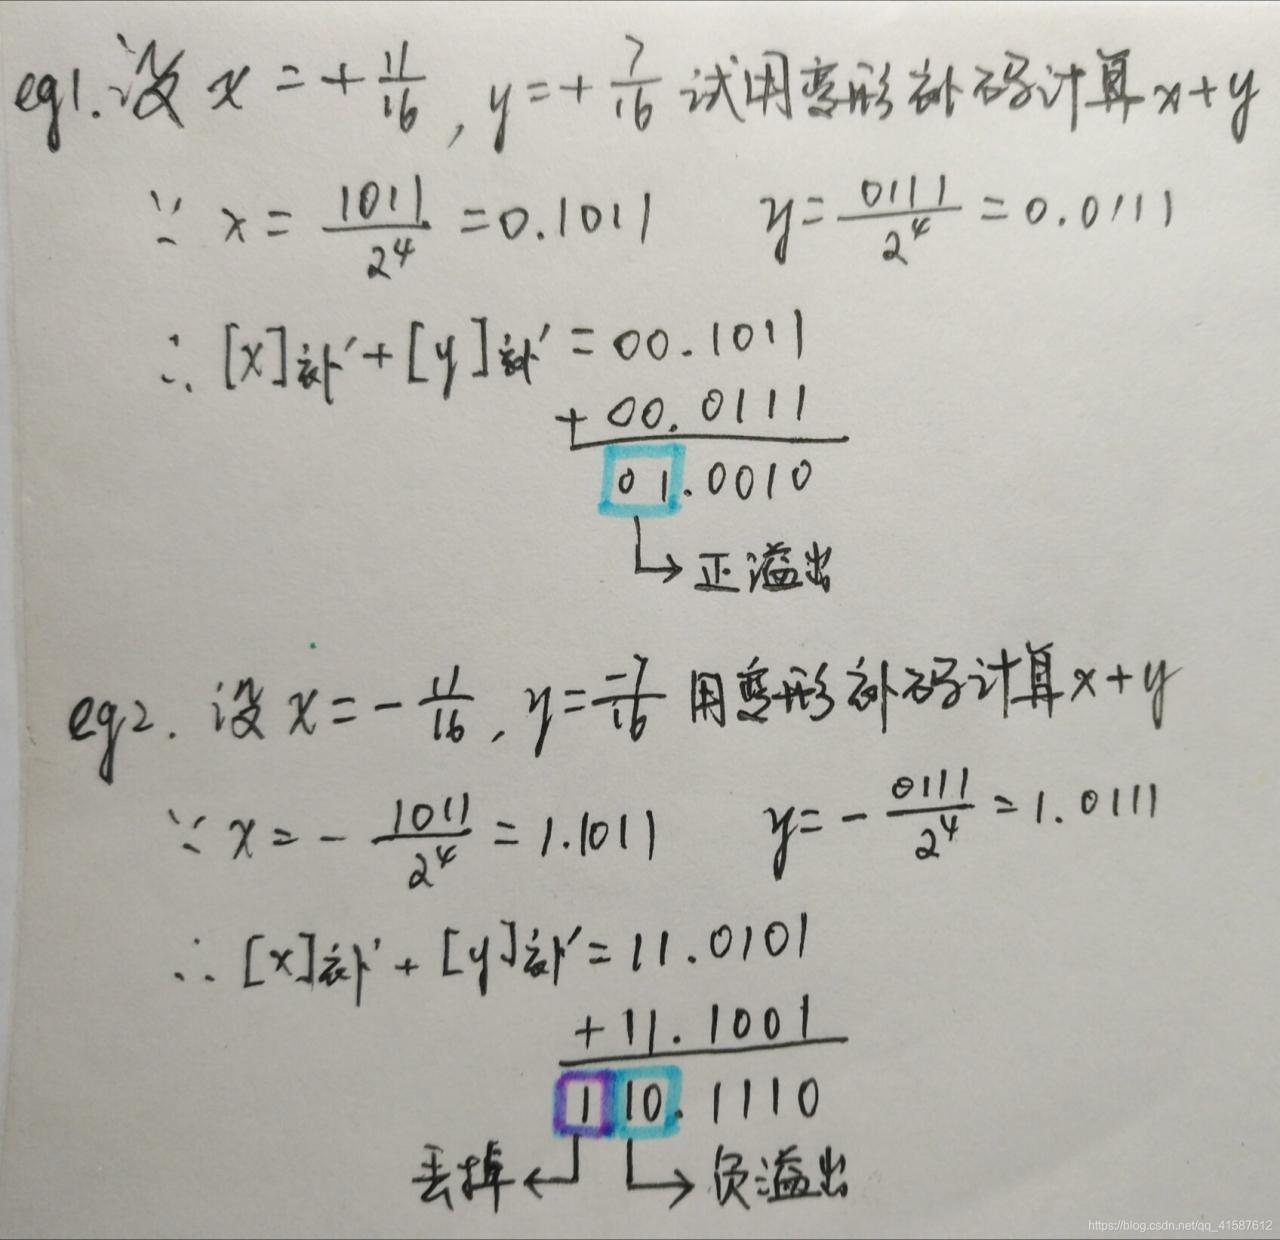 eg1.设 x=+11/16, y=+7/16 试用变形补码计算x+y
∵ x=1011/2⁴=0.1011 y=0111/2⁴=0.0111
∴ [x]补′+[y]补′=00.1011
+00.0111
01.0010
→正溢出
eg2.设 x=-11/16, y=-7/16 用变形补码计算x+y
∵ x=-1011/2⁴=1.1011 y=-0111/2⁴=1.0111
∴ [x]补′+[y]补′=11.0101
+11.1001
110.1110
丢掉← →负溢出
https://blog.csdn.net/qq_41587612